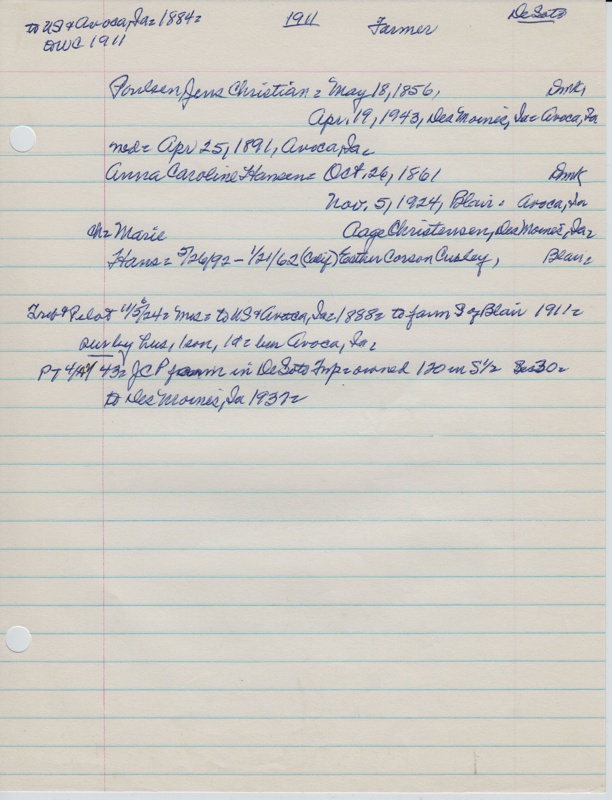 to US & Avoca, Ia= 1884= 1911 Farmer DeSoto
DWC 1911
Poulsen, Jens Christian = May 18, 1856, Dmk,
Apr. 19, 1943, Des Moines, Ia= Avoca, Ia
md= Apr 25, 1891, Avoca, Ia=
Anna Caroline Hansen= Oct. 26, 1861 Dmk
Nov. 5, 1924, Blair= Avoca, Ia
Ch= Marie Aage Christensen, Des Moines, Ia=
Hans= 5/26/92 - 1/21/62 (Calif) Esther Corson Blair=
Trib & Pilot 24= Mrs= to US & Avoca, Ia= 1888= to farm S of Blair 1911=
sur by hus, 1 son, 1d= bur Avoca, Ia=
PT 43= JCP farm in DeSoto Twp= owned 120 in S½ 30=
to Des Moines, Ia 1937=